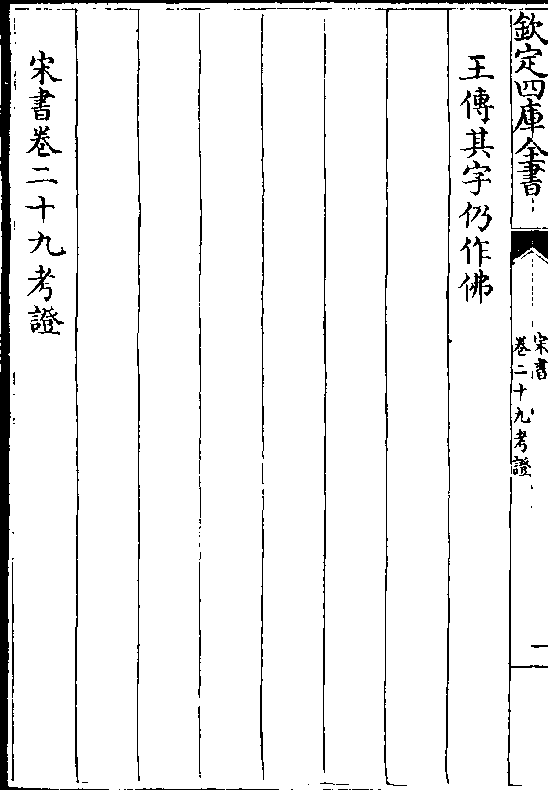 欽定四庫全書
宋書
卷二十九考證
一
王傳其字仍作佛
宋書卷二十九考證